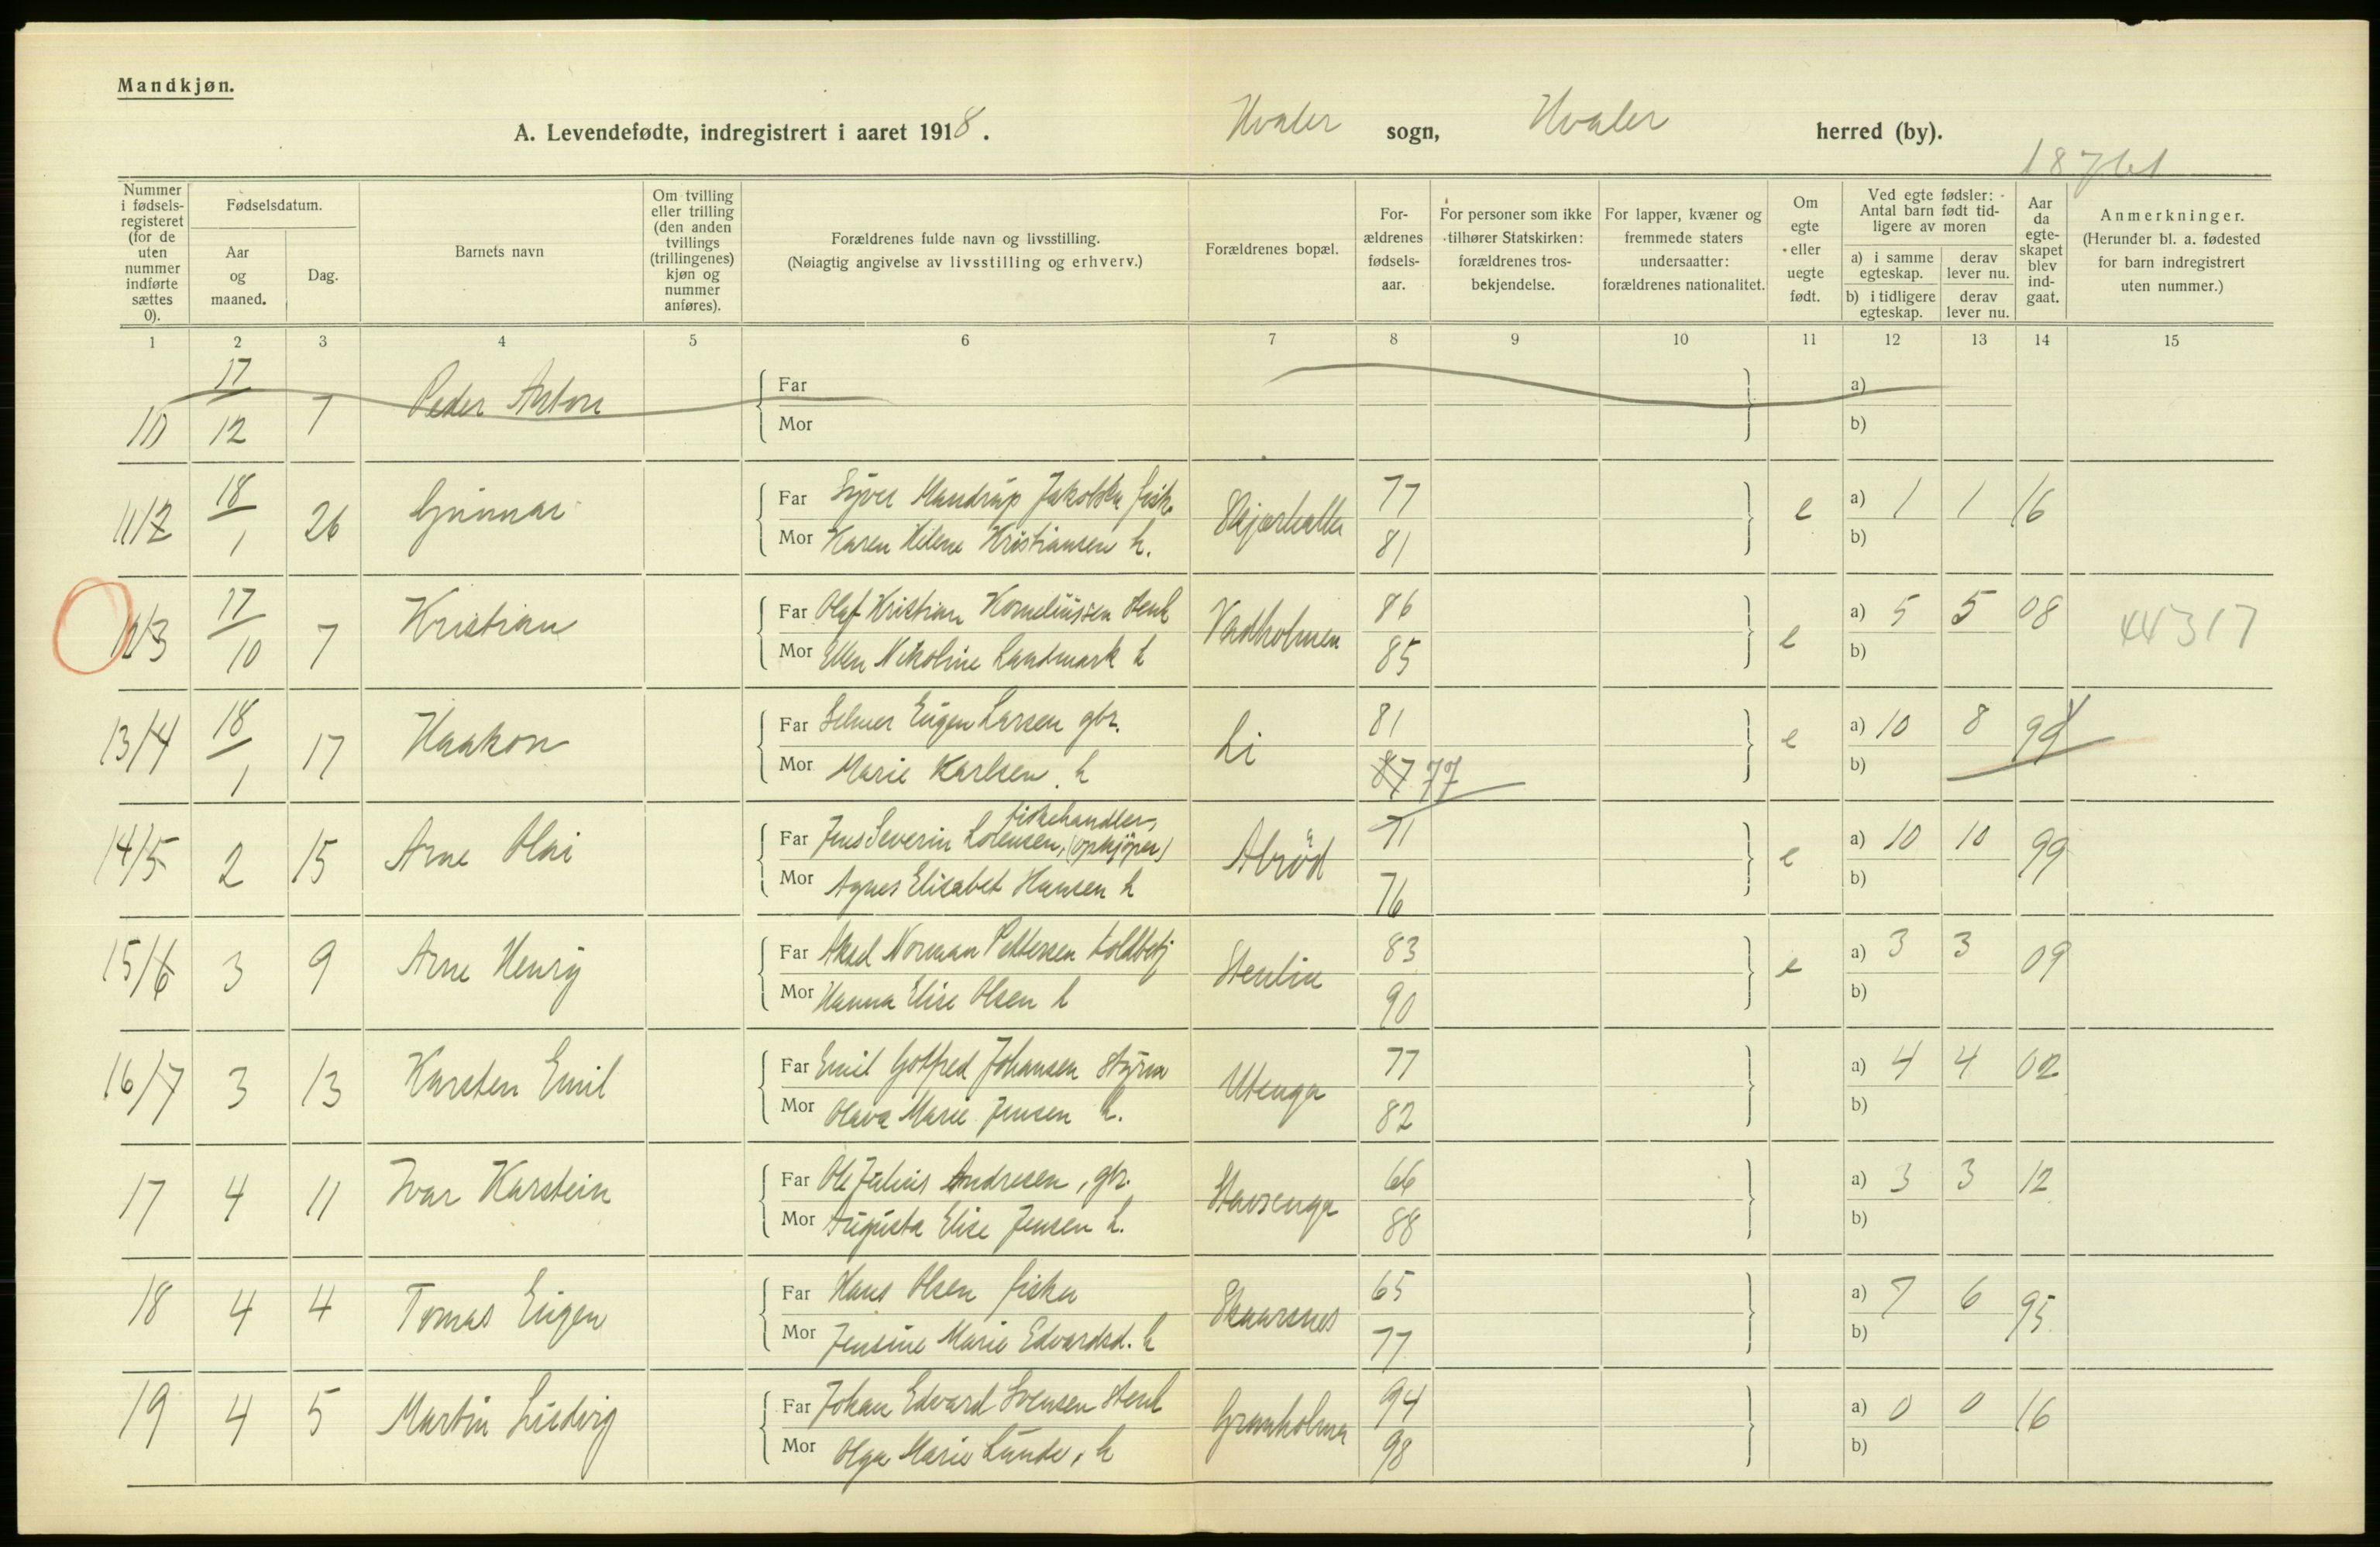 Mandkjøn.
A. Levendefødte, indregistrert i aaret 1918. Hvaler sogn, Hvaler herred (by).
Nummer i fødsels-registeret (for de uten nummer indførte sættes 0).
Fødselsdatum.
Aar og maaned.
Dag.
Barnets navn
Om tvilling eller trilling (den anden tvillings (trillingenes) kjøn og nummer anføres).
Forældrenes fulde navn og livsstilling.
(Nøiagtig angivelse av livsstilling og erhverv.)
Forældrenes bopæl.
For-ældrenes fødsels-aar.
For personer som ikke tilhører Statskirken: forældrenes tros-bekjendelse.
For lapper, kvæner og fremmede staters undersaatter: forældrenes nationalitet.
Om egte eller uegte født.
Ved egte fødsler: Antal barn født tid-ligere av moren
a) i samme egteskap. derav lever nu.
b) i tidligere egteskap. derav lever nu.
Aar da egte-skapet blev ind-gaat.
Anmerkninger.
(Herunder bl. a. fødested for barn indregistrert uten nummer.)
1 2 3 4 5 6 7 8 9 10 11 12 13 14 15
10 17/12 7 Peder Anton Far a)
Mor b)
11/2 18/1 26 Gunnar Far Syver Mandrup Jakobsen fisk. Skjærhalla 77 e a) 1 1 16
Mor Karen Helene Kristiansen h. 81 b)
12/3 17/10 7 Kristian Far Olaf Kristian Korneliussen stenh Vadholmen 86 e a) 5 5 08 44317
Mor Ellen Nikoline Landmark h 85 b)
13/4 18/1 17 Haakon Far Selmer Eugen Larsen gbr. Li 81 e a) 10 8
Mor Marie Karlsen h 87 77 b)
14/5 2 15 Arne Olai Far Jens Severin Lorensen, fiskehandler, (opkjøper) Abrød 71 e a) 10 10 99
Mor Agnes Elisabet Hansen h 76 b)
15/6 3 9 Arne Henry Far Aksel Norman Pettersen toldbetj Stenlia 83 e a) 3 3 09
Mor Hanna Elise Olsen h 90 b)
16/7 3 13 Karsten Emil Far Emil Gotfred Johansen styrm Utenga 77 a) 4 4 02
Mor Olava Marie Jensen h. 82 b)
17 4 11 Ivar Karstein Far Ole Julius Andresen, gbr. 66 a) 3 3 12
Mor Augusta Elise Jensen h. 88 b)
18 4 4 Tomas Eugen Far Hans Olsen fisker Skaarsnes 65 a) 7 6 95
Mor Jensine Marie Edvardsd. h 77 b)
19 4 5 Martin Ludvig Far Johan Edvard Svensen stenh 94 a) 0 0 16
Mor Olga Marie Lunde, h 98 b)